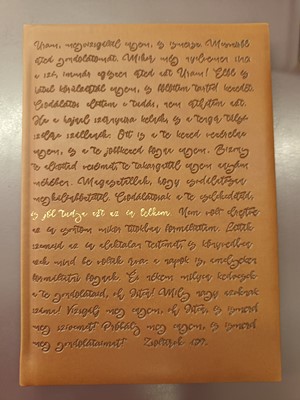 Uram, megvizsgáltál engem, és ismersz. Messziről
érted gondolatomat. Mikor még nyelvemen sincs
a szó, immár egészen érted azt Uram! Elöl és
hátul körülzártál engem, és fölöttem tartod kezedet.
Csodálatos előttem e tudás, nem érthetem azt.
Ha a hajnal szárnyaira kelnék, és a tenger túlsó
szélére szállanék. Ott is a te kezed vezérelne
engem, és a te jobbkezed fogna engem. Bizony
te alkottad veséimet, te takargattál engem anyám
méhében. Magasztallak, hogy csodálatosan
megkülönböztettél. Csodálatosak a te cselekedeteid,
és jól tudja ezt az én lelkem. Nem volt elrejtve
az én csontom mikor titokban formáltattam. Látták
szemeid az én alaktalan testemet, és könyvedben
ezek mind be voltak írva: a napok is, amelyeken
formáltatni fognak. És nékem milyen kedvesek
a te gondolataid, oh Isten! Mily nagy azoknak
száma! Vizsgálj meg engem, oh Isten, és ismerd
meg szívemet! Próbálj meg engem, és ismerd
meg gondolataimat! Zsoltárok 139.